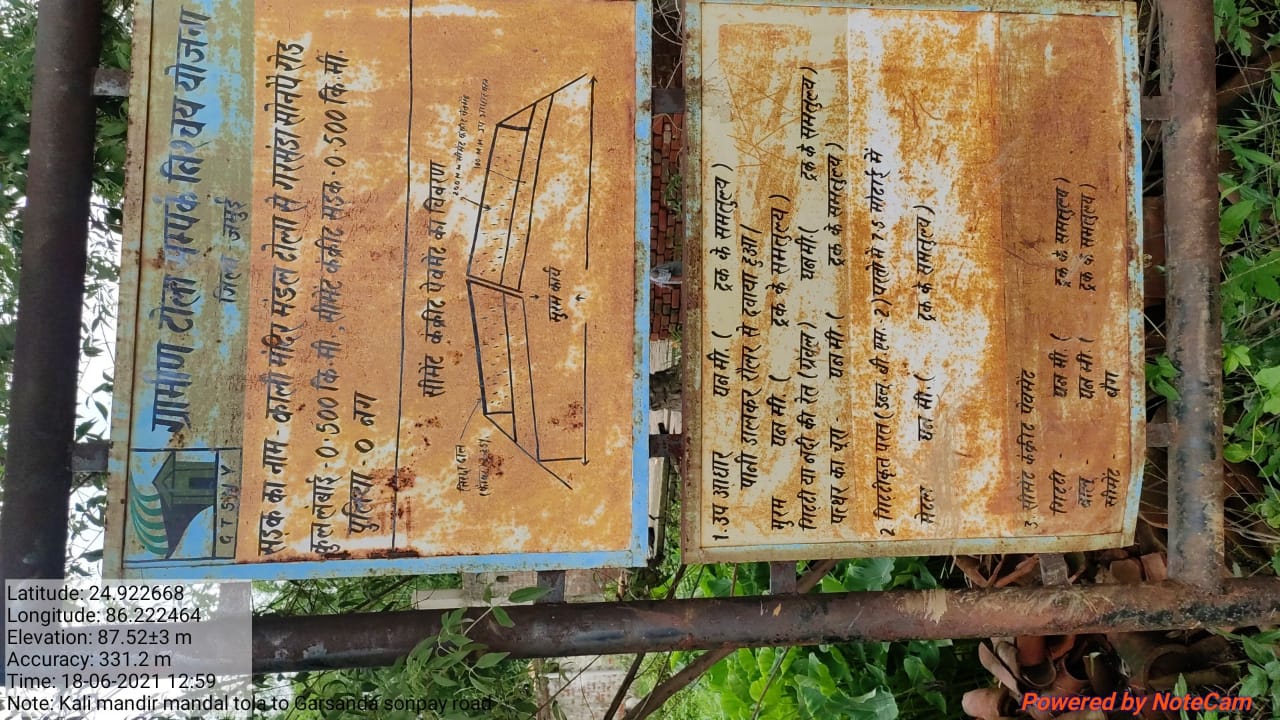 ग्रामीण टोला सम्पर्क निश्चय योजना
जिला जमुई
GTSNY
सड़क का नाम - काली मंदिर मंडल टोला से गरसंडा सोनपे रोड
कुल लंबाई - 0.500 कि.मी., सीमेंट कंक्रीट सड़क - 0.500 कि.मी.
पुलिया - 0 नग
सीमेंट कंक्रीट पेवमेंट का विवरण
मुरम कार्य
1. उप आधार घन मी. ( ट्रक के समतुल्य )
पानी डालकर रौलर से दवाया हुआ।
मुरम घन मी. ( ट्रक के समतुल्य )
मिट्टी या नदी की रेत (ग्रेवल) घन मी. ( ट्रक के समतुल्य )
पत्थर का चूरा घन मी. ( ट्रक के समतुल्य )
2. गिट्टीकृत परत (डब्लू. बी. एम. 2) परतो में 75 मोटाई में
मेटल घन मी. ( ट्रक के समतुल्य )
3. सीमेंट कंक्रीट पेवमेंट
गिट्टी - घन मी. ( ट्रक के समतुल्य )
बालू - घन मी. ( ट्रक के समतुल्य )
सीमेंट - बैग
Latitude: 24.922668
Longitude: 86.222464
Elevation: 87.52±3 m
Accuracy: 331.2 m
Time: 18-06-2021 12:59
Note: Kali mandir mandal tola to Garsanda sonpay road
Powered by NoteCam